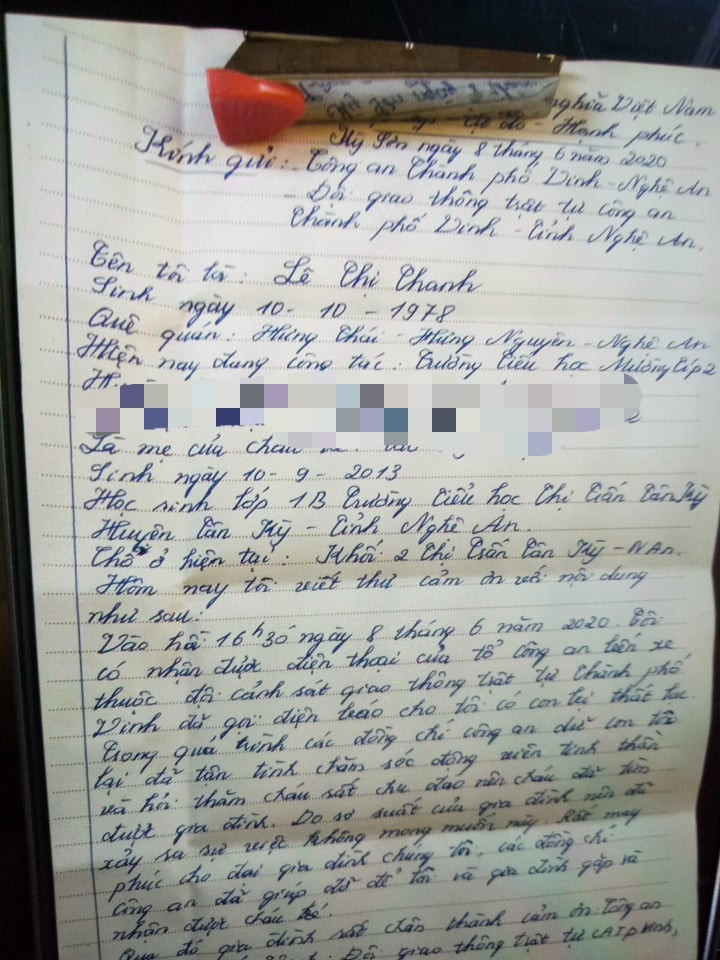 nghĩa Việt Nam
Tự do - Hạnh phúc.
Kỳ Sơn ngày 8 tháng 6 năm 2020
Kính gửi: - Công an Thành phố Vinh - Nghệ An
- Đội giao thông trật tự công an
Thành phố Vinh - Tỉnh Nghệ An.
Tên tôi là: Lê Thị Thanh
Sinh ngày 10 - 10 - 1978
Quê quán: Hưng Thái - Hưng Nguyên - Nghệ An
Hiện nay đang công tác: Trường Tiểu học Mường Típ 2
Là mẹ của cháu
Sinh ngày 10 - 9 - 2013
Học sinh lớp 1B Trường Tiểu học Thị Trấn Tân Kỳ
Huyện Tân Kỳ - Tỉnh Nghệ An.
Chỗ ở hiện tại: Khối 2 Thị Trấn Tân Kỳ - NAn.
Hôm nay tôi viết thư cảm ơn với nội dung
như sau:
Vào hồi 16h30 ngày 8 tháng 6 năm 2020. Tôi
có nhận được điện thoại của tổ công an bến xe
thuộc đội cảnh sát giao thông trật tự Thành phố
Vinh đã gọi điện báo cho tôi có con bị thất lạc.
Trong quá trình các đồng chí công an giữ con tôi
lại đã tận tình chăm sóc động viên tinh thần
và hỏi thăm cháu rất chu đáo nên cháu đã tìm
được gia đình. Do sơ suất của gia đình nên đã
xảy ra sự việc không mong muốn này. Rất may
phúc cho đại gia đình chúng tôi, các đồng chí
công an đã giúp đỡ để tôi và gia đình gặp và
nhận được cháu bé.
Qua đó gia đình rất chân thành cảm ơn: Công an
Đội giao thông trật tự CATP Vinh,